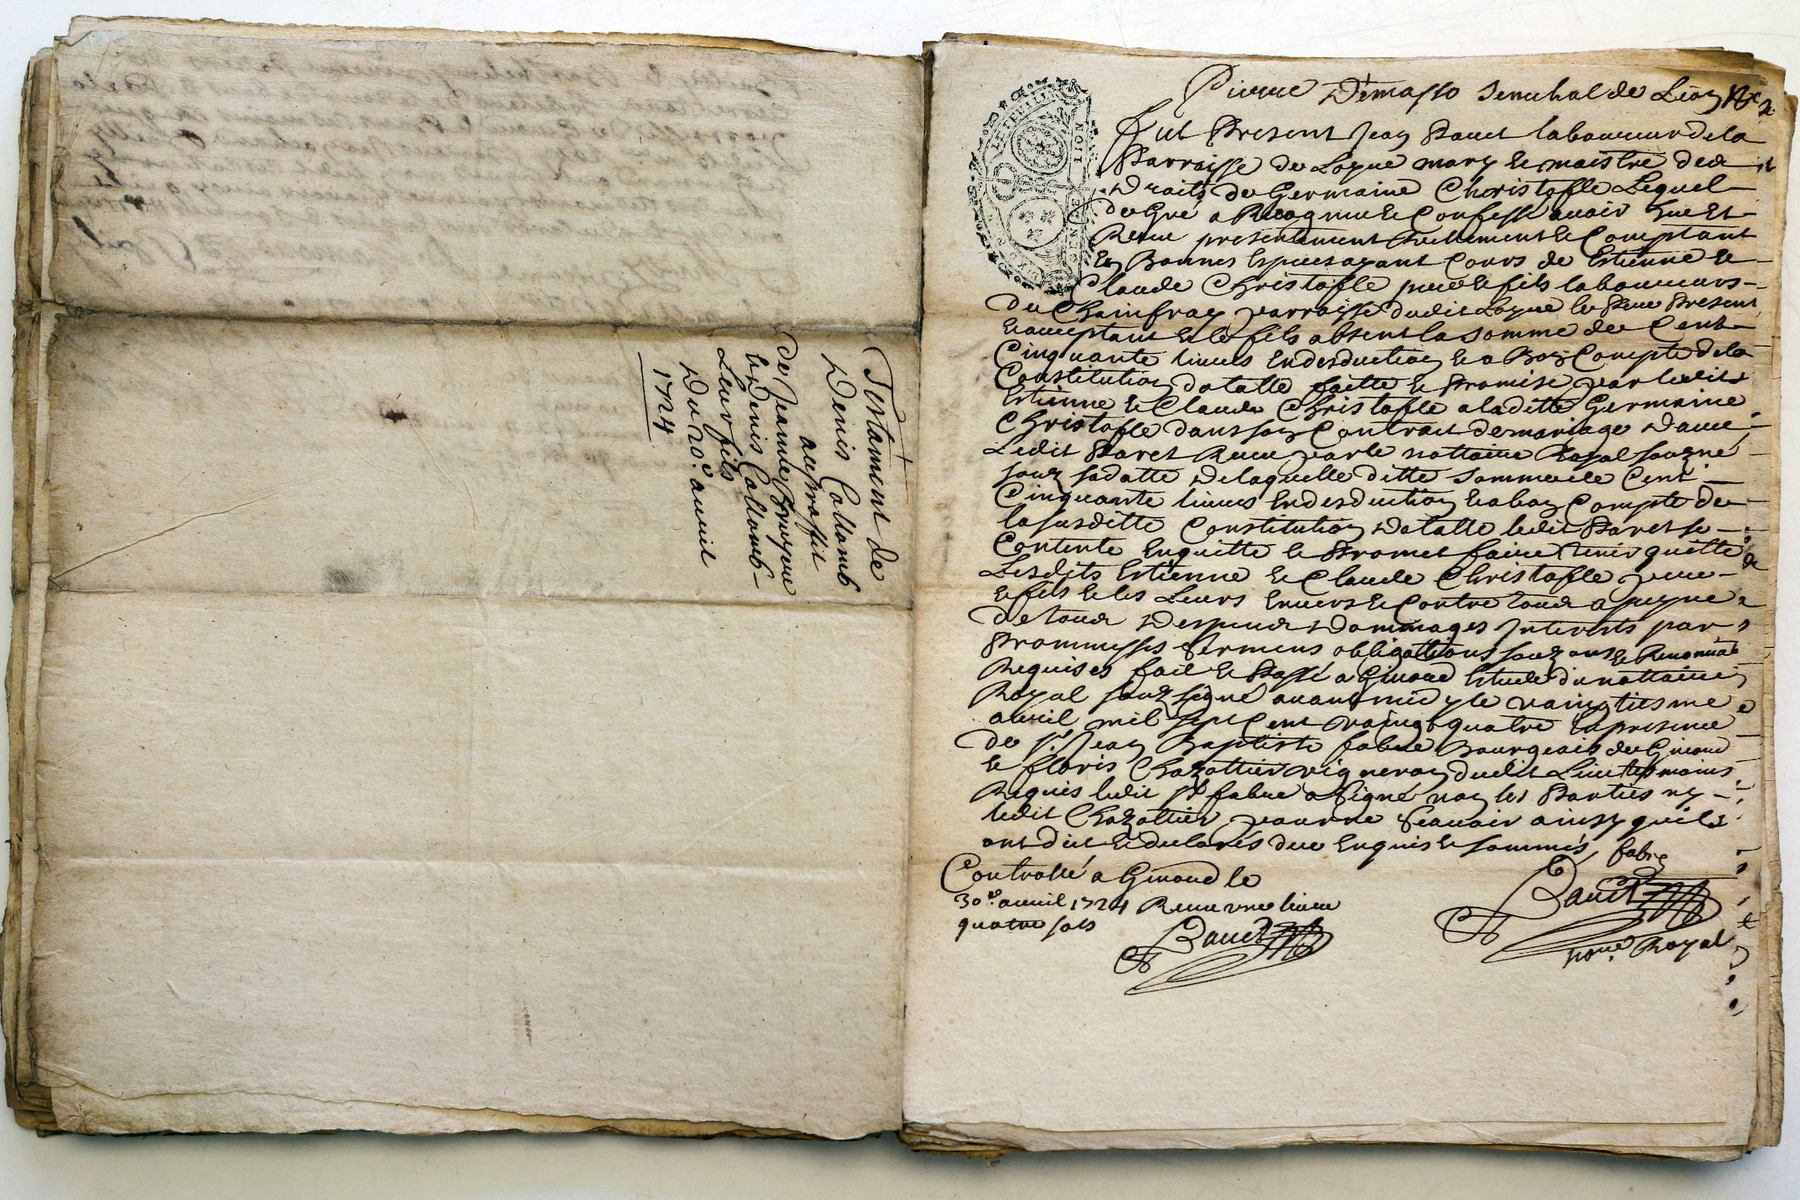 Testament de
Denis Collomb
au proffit
de Jeanne
& Denis Collomb
Leur fils
Du 20e. avril
1724
Pierre Demasso Senechal de Lion
Fut Present Jean Paret laboureur de la
Parroisse de Logne mary & maistre des
Droits de Germaine Christofle Lequel
de Gré a Recognu & Confesse avoir Eue Et
Receu presentement Reelement & Comptant
En Bonnes Especes ayant Cours de Estienne &
Claude Christofle pere & fils laboureurs
de parroisse dudit Logne le Pere Present
& acceptant & le fils absent la somme de Cent
Cinquante livres En desduction & a Bon Compte de la
Constitution dotalle faitte & Promise par lesdits
Estienne & Claude Christofle a laditte Germaine
Christofle dans son Contrait de mariage D'avec
Ledit Paret Receu par le nottaire Royal sousigné
souz sa datte De laquelle ditte somme de Cent
Cinquante livres En desduction & a bon Compte de
la susditte Constitution Dotalle ledit Paret se
Contente Enquitte & Promet faire tenir quitte
Lesdits Estienne & Claude Christofle pere
& fils & les Leurs Envers & Contre tous a peyne
de tous Despens Dommages Interests par
Prommesses Sermens obligations souz &
Requises fait & Passé a Givord Estude du nottaire
Royal souzsigné avant midy le vaingtiesme
avril mil sept Cent vaingt quatre En presence
de Sr. Jean Baptiste fabre Bourgeois de Givord
& floris Chazottier vigneron dudit Lieu tesmoins
Requis ledit Sr. fabre a Signé non les Parties ny
ledit Chazottier pour ne Scavoir ainsy quils
ont dit & declarés de ce Enquis & sommés
fabre
Controllé a Givord le
30e. avril 1724 Receu une livre
quatre sols
Royal